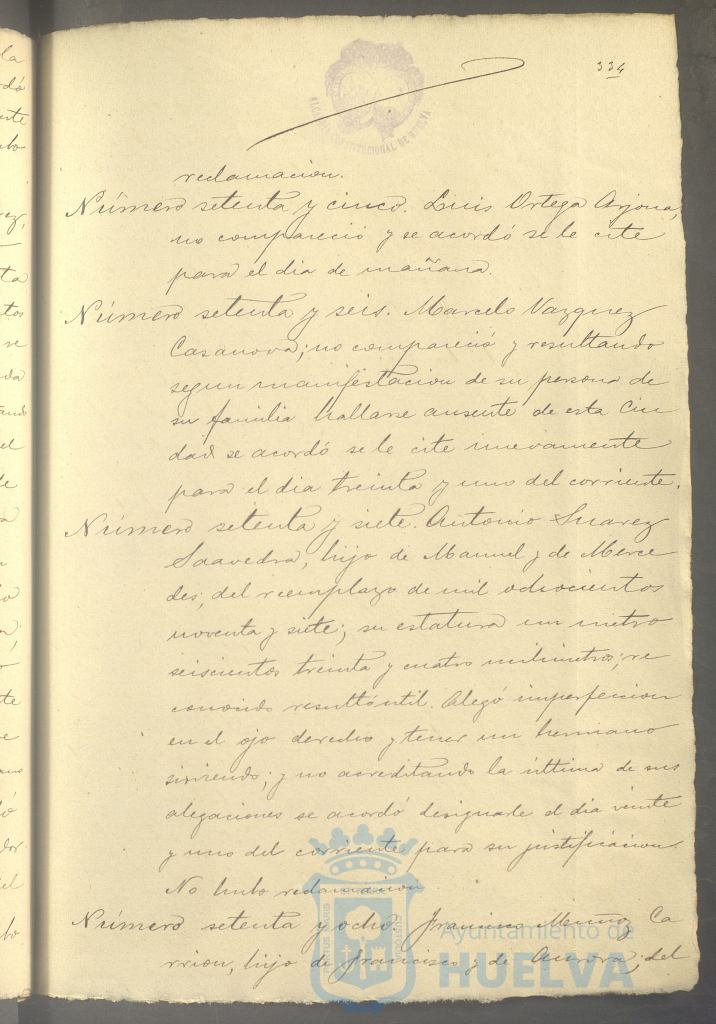 334
ALCALDIA CONSTITUCIONAL DE HUELVA
reclamacion.
Número setenta y cinco. Luis Ortega Arjona,
no compareció y se acordó se le cite
para el dia de mañana.
Número setenta y seis. Marcelo Vazquez
Casanova; no compareció y resultando
segun manifestacion de su persona de
su familia hallarse ausente de esta Ciu
dad se acordó se le cite nuevamente
para el dia treinta y uno del corriente.
Número setenta y siete. Antonio Suarez
Saavedra, hijo de Manuel y de Merce
des, del reemplazo de mil ochocientos
noventa y siete; su estatura un metro
seiscientos treinta y cuatro milimetros; re
conocido resultó útil. Alegó imperfeccion
en el ojo derecho y tener un hermano
sirviendo; y no acreditando la última de sus
alegaciones se acordó designarle el dia veinte
y uno del corriente para su justificacion.
No hubo reclamacion
Número setenta y ocho. Francisco Muñoz Ca
rrion, hijo de Francisco y de Aurora; del
Ayuntamiento de
HUELVA